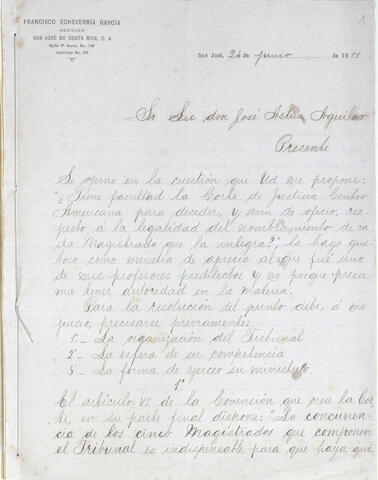 1
FRANCISCO ECHEVERRÍA GARCÍA
ABOGADO
SAN JOSÉ DE COSTA RICA, C. A.
Apartado No. 405
San José, 24 de junio de 1911
Sr Lic don José Astua Aguilar
Presente
Si opino en la cuestión que Ud me propone:
"¿Tiene facultad la Corte de Justicia Centro
Americana para decidir, y aun de oficio, res-
pecto, á la legalidad del nombramiento de ca-
da Magistrado que la integra?", lo hago gus-
toso como muestra de aprecio al que fué uno
de mis profesores predilectos y no porque presu-
ma tener autoridad en la materia.
Para la resolución del punto debe, á mi
juicio, precisarse previamente:
1º- La organización del Tribunal
2º- La esfera de su competencia
3º- La forma de ejercer su ministerio.
1º
El artículo VI de la Convención que crea la Cor-
te, en su parte final dispone: "La concurren-
cia de los cinco Magistrados que componen
el Tribunal es indispensable para que haya quo